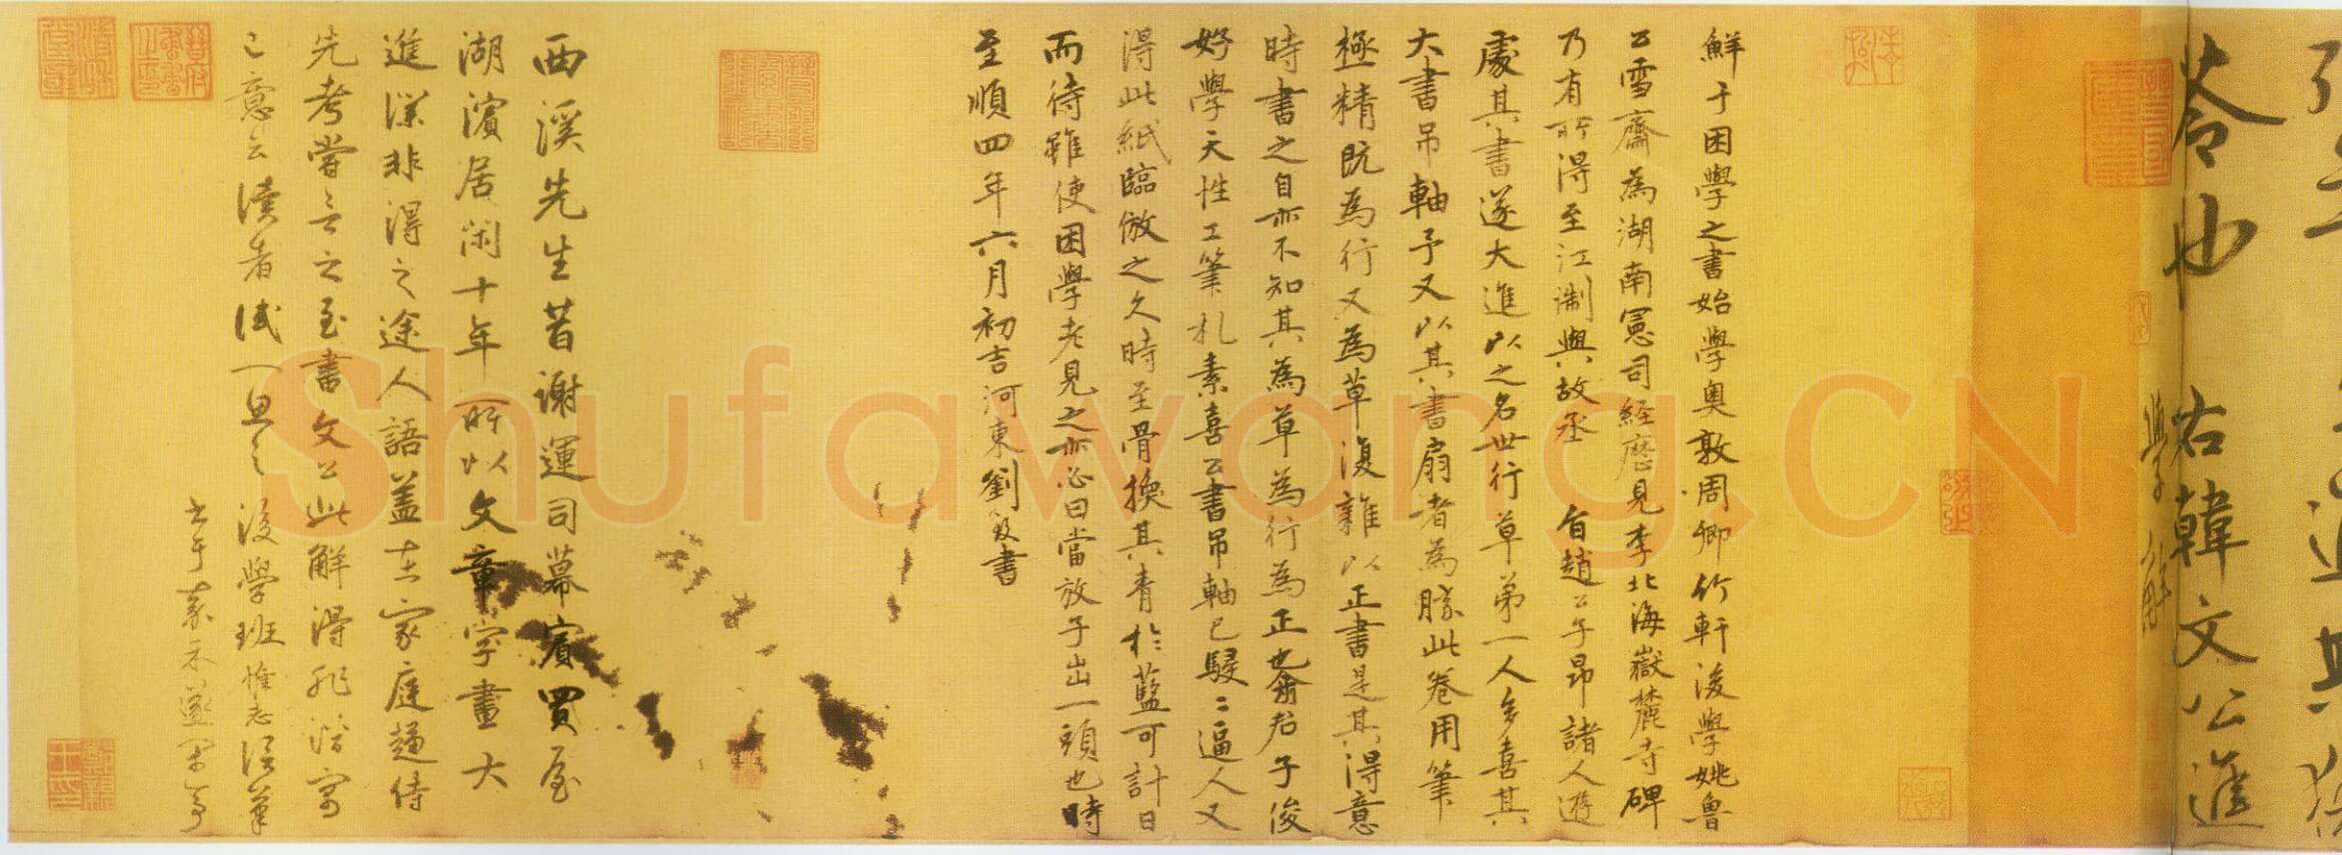 苓也 右韓文公進
學解
鮮于困學之書始學奧敦周卿竹軒後學姚魯
公雪齋為湖南憲司經歷見李北海嶽麓寺碑
乃有所得至江淛與故丞 旨趙公子昂諸人遊
處其書遂大進以之名世行草第一人多喜其
大書吊軸予又以其書扇者為勝此卷用筆
極精既為行又為草復雜以正書是其得意
時書之自亦不知其為草為行為正也喬君子俊
好學天性工筆札素喜公書吊軸已駸〻逼人又
得此紙臨倣之久時至骨換其青於藍可計日
而待雖使困學老見之亦必曰當放子出一頭也時
至順四年六月初吉河東劉致書
西溪先生昔謝運司幕賓買屋
湖濱居閑十年所以文章字畫大
進深非得之途人語蓋士家庭趨侍
先考嘗言之至書文公此解得非潛寓
己意云讀者試一思之 後學班惟志
Shufawang.CN